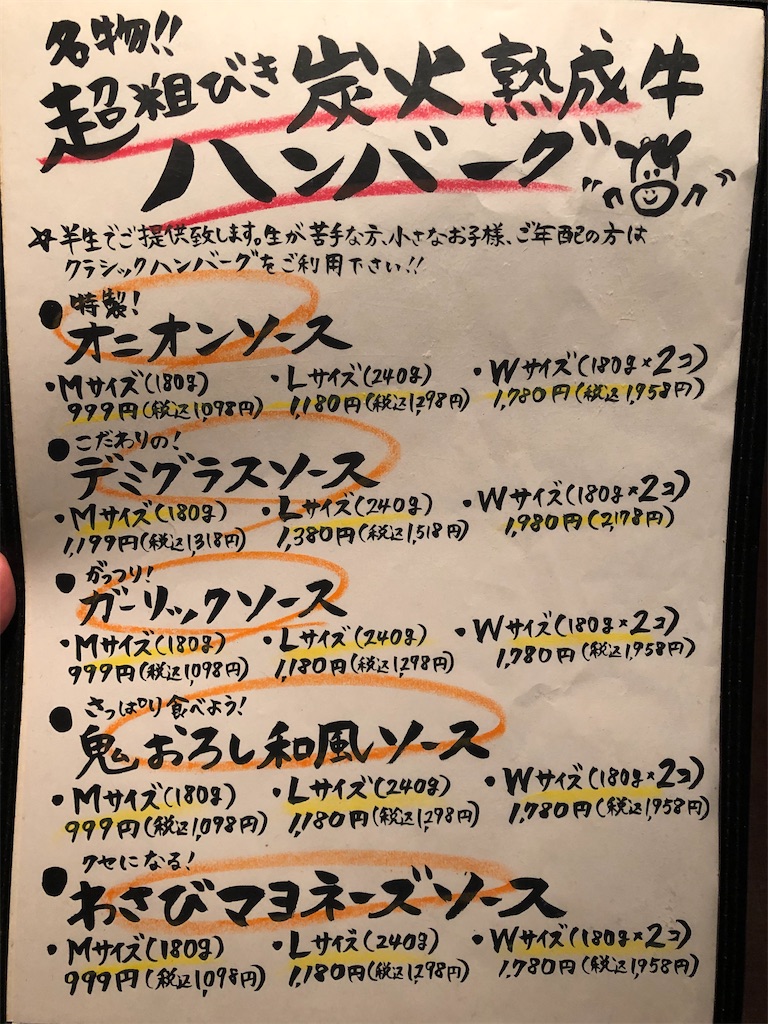 名物!!
超粗びき炭火熟成牛
ハンバーグ
☆半生でご提供致します。生が苦手な方、小さなお子様、ご年配の方は
クラシックハンバーグをご利用下さい!!
●特製!
オニオンソース
・Mサイズ(180g) ・Lサイズ(240g) ・Wサイズ(180g×2コ)
999円(税込1,098円) 1,180円(税込1,298円) 1,780円(税込1,958円)
●こだわりの!
デミグラスソース
・Mサイズ(180g) ・Lサイズ(240g) ・Wサイズ(180g×2コ)
1,199円(税込1,318円) 1,380円(税込1,518円) 1,980円(2,178円)
●がっつり!
ガーリックソース
・Mサイズ(180g) ・Lサイズ(240g) ・Wサイズ(180g×2コ)
999円(税込1,098円) 1,180円(税込1,298円) 1,780円(税込1,958円)
●さっぱり食べよう!
鬼おろし和風ソース
・Mサイズ(180g) ・Lサイズ(240g) ・Wサイズ(180g×2コ)
999円(税込1,098円) 1,180円(税込1,298円) 1,780円(税込1,958円)
●クセになる!
わさびマヨネーズソース
・Mサイズ(180g) ・Lサイズ(240g) ・Wサイズ(180g×2コ)
999円(税込1,098円) 1,180円(税込1,298円) 1,780円(税込1,958円)